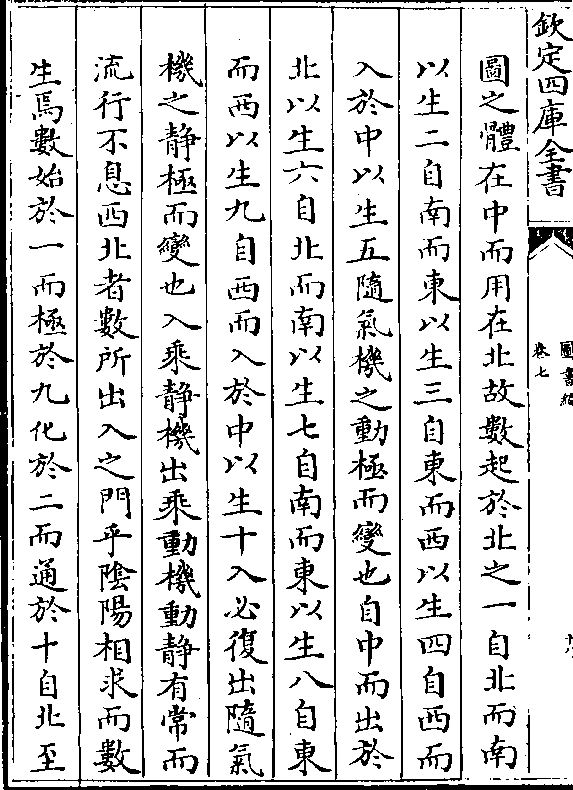 欽定四庫全書
圖書編
卷七
圖之體在中而用在北故數起於北之一自北而南
以生二自南而東以生三自東而西以生四自西而
入於中以生五隨氣機之動極而變也自中而出於
北以生六自北而南以生七自南而東以生八自東
而西以生九自西而入於中以生十入必復出隨氣
機之静極而變也入乘静機出乘動機動静有常而
流行不息西北者數所出入之門乎陰陽相求而數
生焉數始於一而極於九化於二而通於十自北至